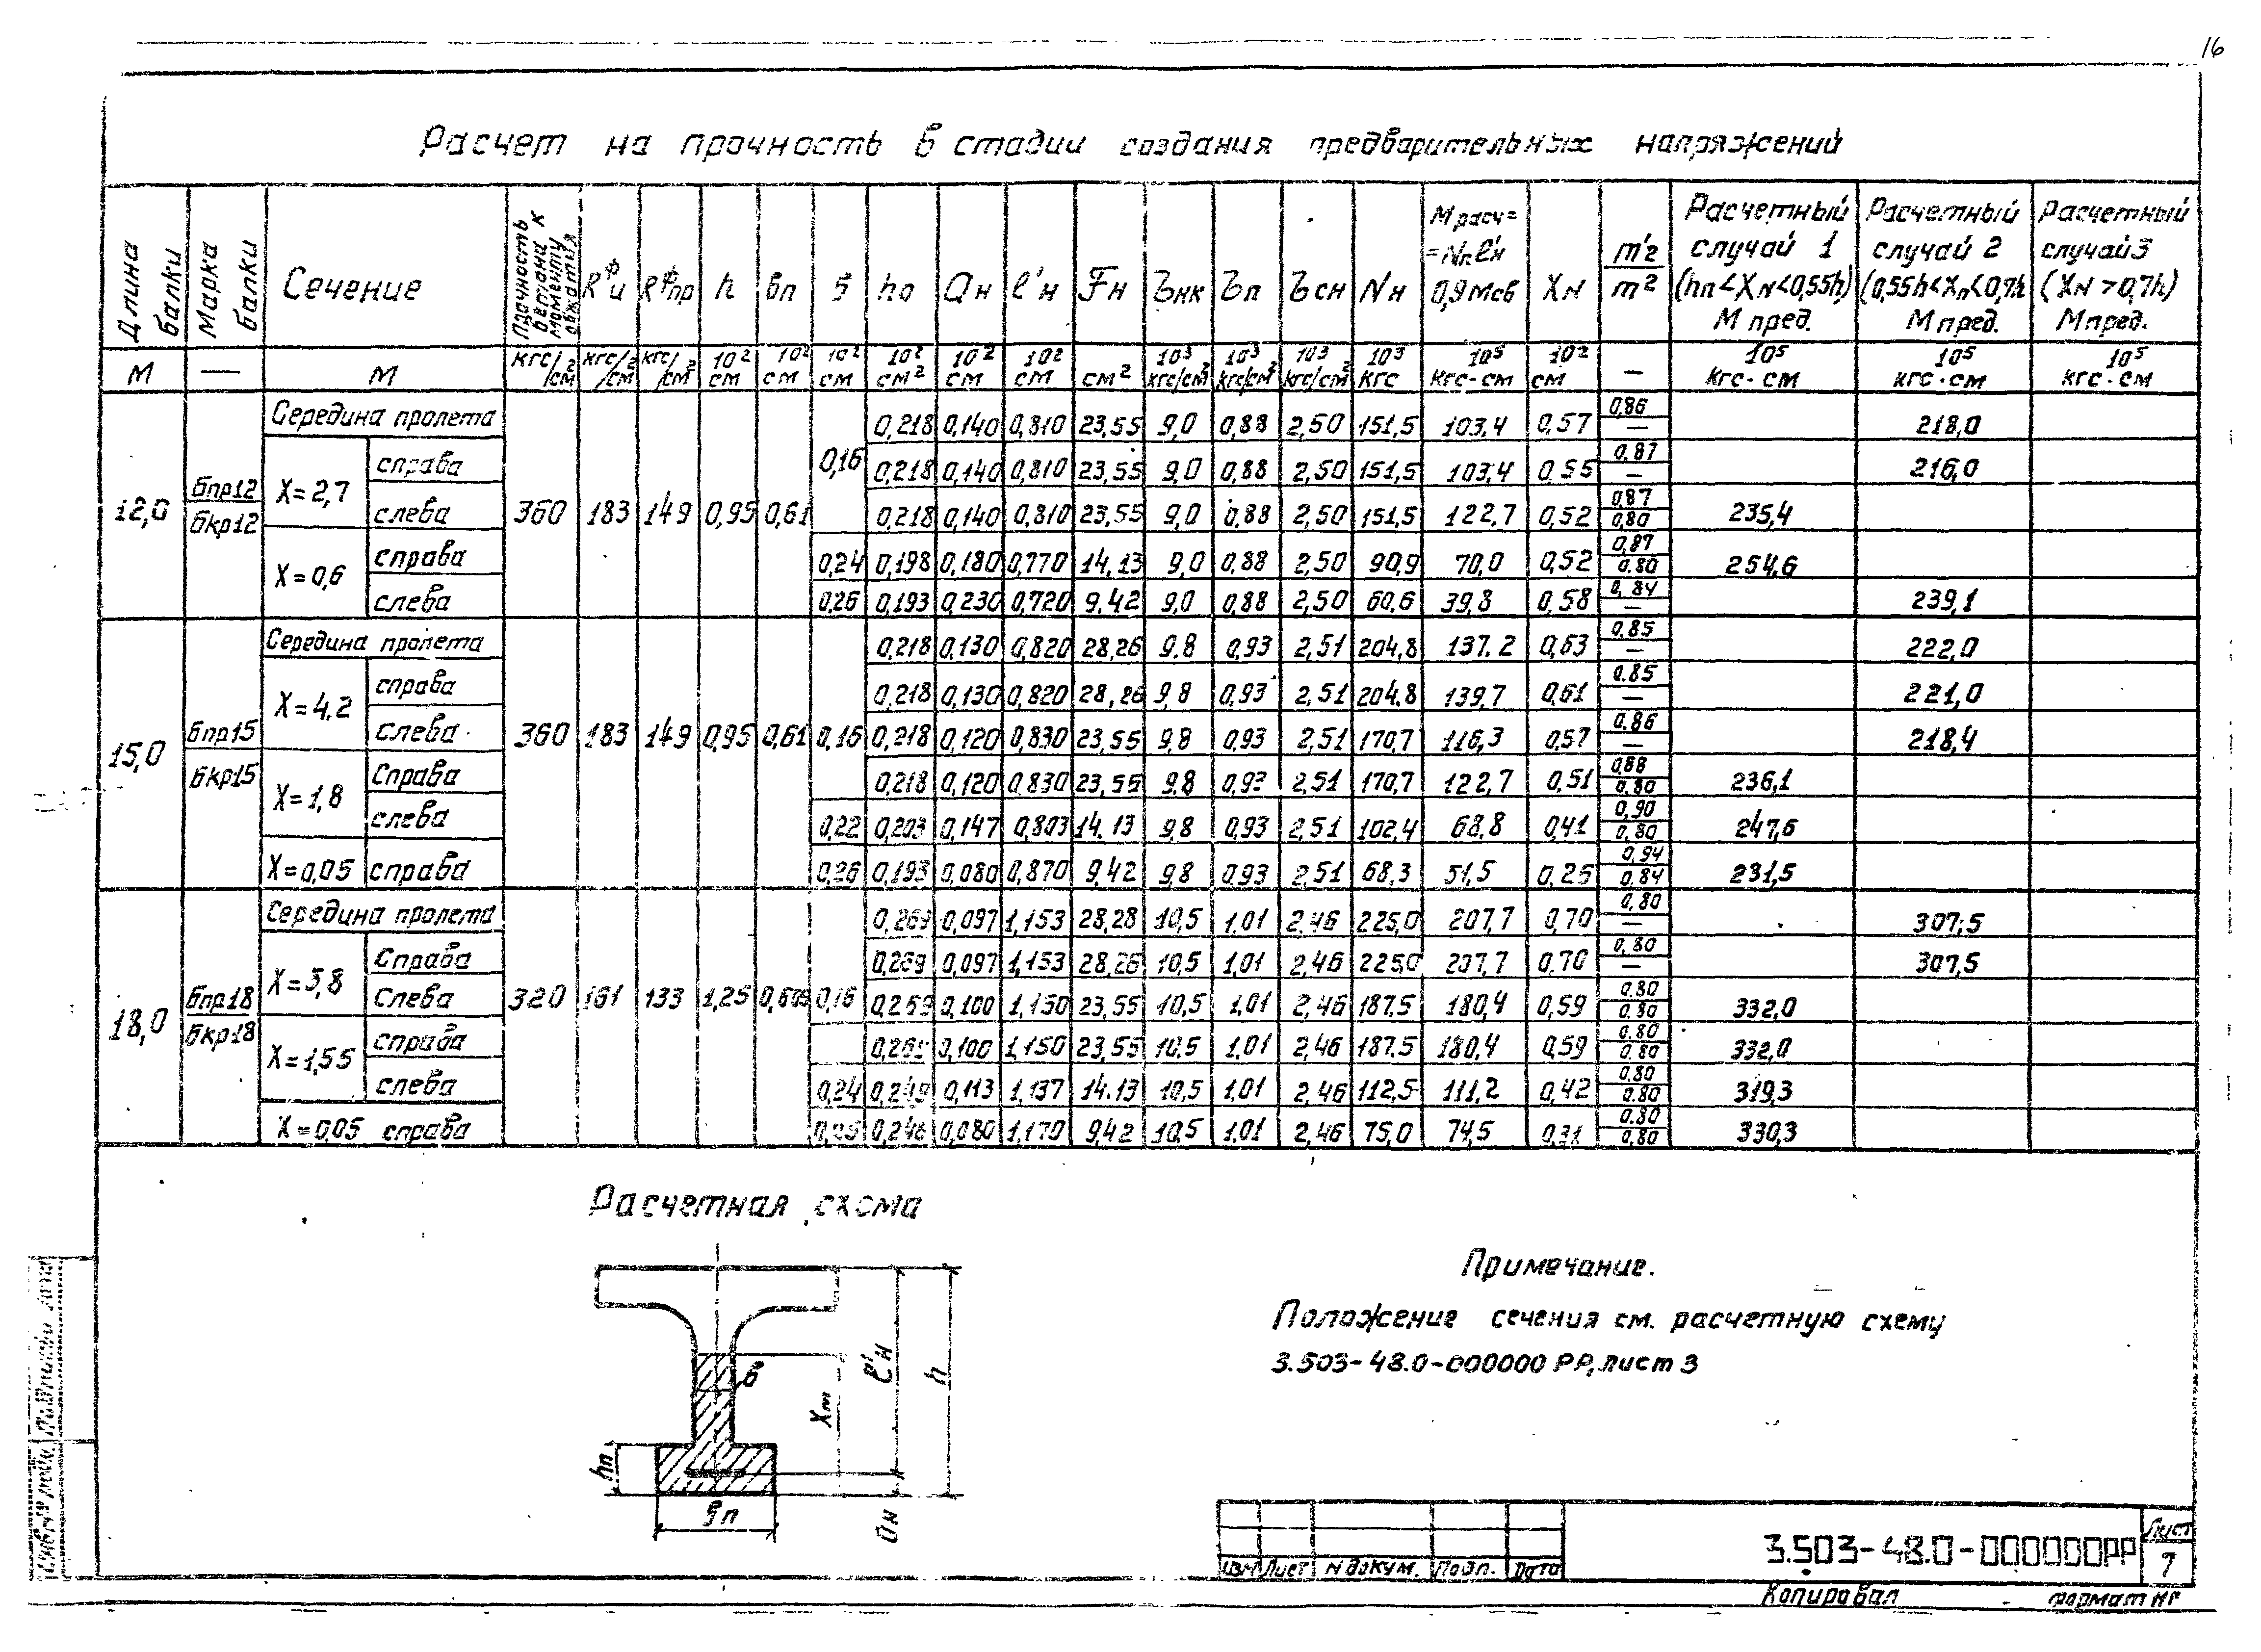 16
Расчет на прочность в стадии создания предварительных напряжений
Длина балки
Марка балки
Сечение
Прочность бетона к моменту обжатия
Rфи
Rфпр
h
bп
б
hо
aн
l'н
Fн
σнк
σп
σсн
Nн
M расч= =Nн l'н 0,9Mсв
XN
m'2/m2
Расчетный случай 1 (hп<XN<0,55h) M пред.
Расчетный случай 2 (0,55h<Xп<0,7h M пред.
Расчетный случай 3 (XN >0,7h) Mпред.
М — М кгс/см² кгс/см² кгс/см² 10² см 10² см 10² см 10² см² 10² см 10² см см² 10³ кгс/см² 10³ кгс/см² 10³ кгс/см² 10³ кгс 10⁵ кгс-см 10² см — 10⁵ кгс-см 10⁵ кгс·см 10⁵ кгс·см
12,0 Бпр12 Бкр12 360 183 149 0,95 0,61 0,16
Середина пролета 0,218 0,140 0,810 23,55 9,0 0,88 2,50 151,5 103,4 0,57 0,86 — 218,0
X=2,7 справа 0,218 0,140 0,810 23,55 9.0 0,88 2,50 151,5 103,4 0,55 0,87 — 216,0
слева 0,218 0,140 0,810 23,55 9,0 0,88 2,50 151,5 122,7 0,52 0,87 0,80 235,4
X=0,6 справа 0,24 0,198 0,180 0,770 14,13 9,0 0,88 2,50 90,9 70,0 0,52 0,87 0.80 254,6
слева 0,26 0,193 0,230 0,720 9,42 9,0 0,88 2,50 60,6 39,8 0,58 0,84 — 239,1
15,0 Бпр15 Бкр15 360 183 149 0,95 0,61 0,16
Середина пролета 0,218 0,130 0,820 28,26 9.8 0,93 2,51 204,8 137.2 0,63 0.85 — 222,0
X=4,2 справа 0,218 0,130 0,820 28,26 9,8 0,93 2,51 204.8 139,7 0,61 0.85 — 221,0
слева 0,218 0,120 0,830 23,55 9,8 0,93 2,51 170,7 116,3 0,57 0.86 — 218,4
X=1,8 Справа 0,218 0,120 0,830 23,55 9,8 0,93 2,51 170,7 122,7 0,51 0,88 0.80 236,1
слева 0,22 0,203 0,147 0,803 14.13 9,8 0,93 2,51 102,4 68,8 0,41 0,90 0.80 247,6
X=0,05 справа 0,26 0,193 0,080 0,870 9,42 9,8 0,93 2,51 68,3 51,5 0,25 0,94 0.84 231,5
18,0 Бпр18 Бкр18 320 161 133 1,25 0,16
Середина пролета 0,269 0,097 1,153 28,28 10,5 1,01 2,46 225,0 207,7 0,70 0,80 — 307,5
X=5,8 Справа 0,269 0,097 1,153 28,26 10,5 1,01 2,46 225,0 207,7 0,70 0,80 — 307,5
Слева 0,269 0,100 1,150 23,55 10,5 1,01 2,46 187,5 180,4 0,59 0.80 0.80 332,0
X=1,55 справа 0,269 0,100 1,150 23,55 10,5 1,01 2,46 187.5 180,4 0,59 0.80 0.80 332,0
слева 0,24 0,249 0,113 1,137 14.13 10,5 1,01 2,46 112,5 111,2 0,42 0,80 0.80 319,3
X=0,05 справа 0,246 0,080 1,170 9,42 10,5 1,01 2,46 75,0 74,5 0,31 0.80 0,80 330,3
Расчетная схема
б
hп
bп
Xт
l'н
h
aн
Примечание.
Положение сечения см. расчетную схему
3.503-48.0-000000 РР, лист 3
Изм Лист N докум. Подп. Дата
3.503-48.0-000000РР
Лист
7
Копировал
формат